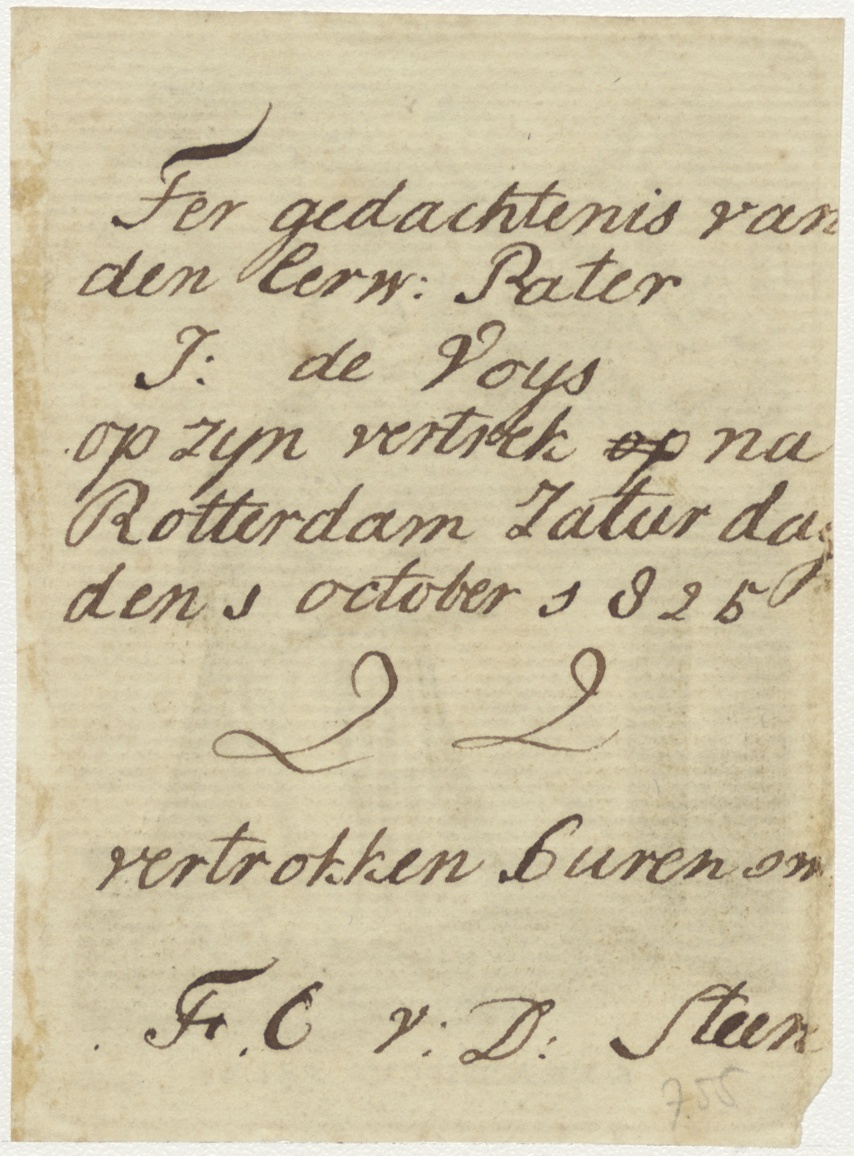 Ter gedachtenis van
den Eerw: Pater
J: de Voys
op zyn vertrek op na
Rotterdam Zatur dag
den 1 october 1825
vertrokken 6 uren
F. C v: D: Steen
7.55